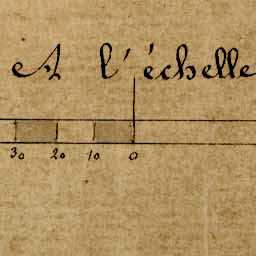 A l'échelle
30 20 10 0